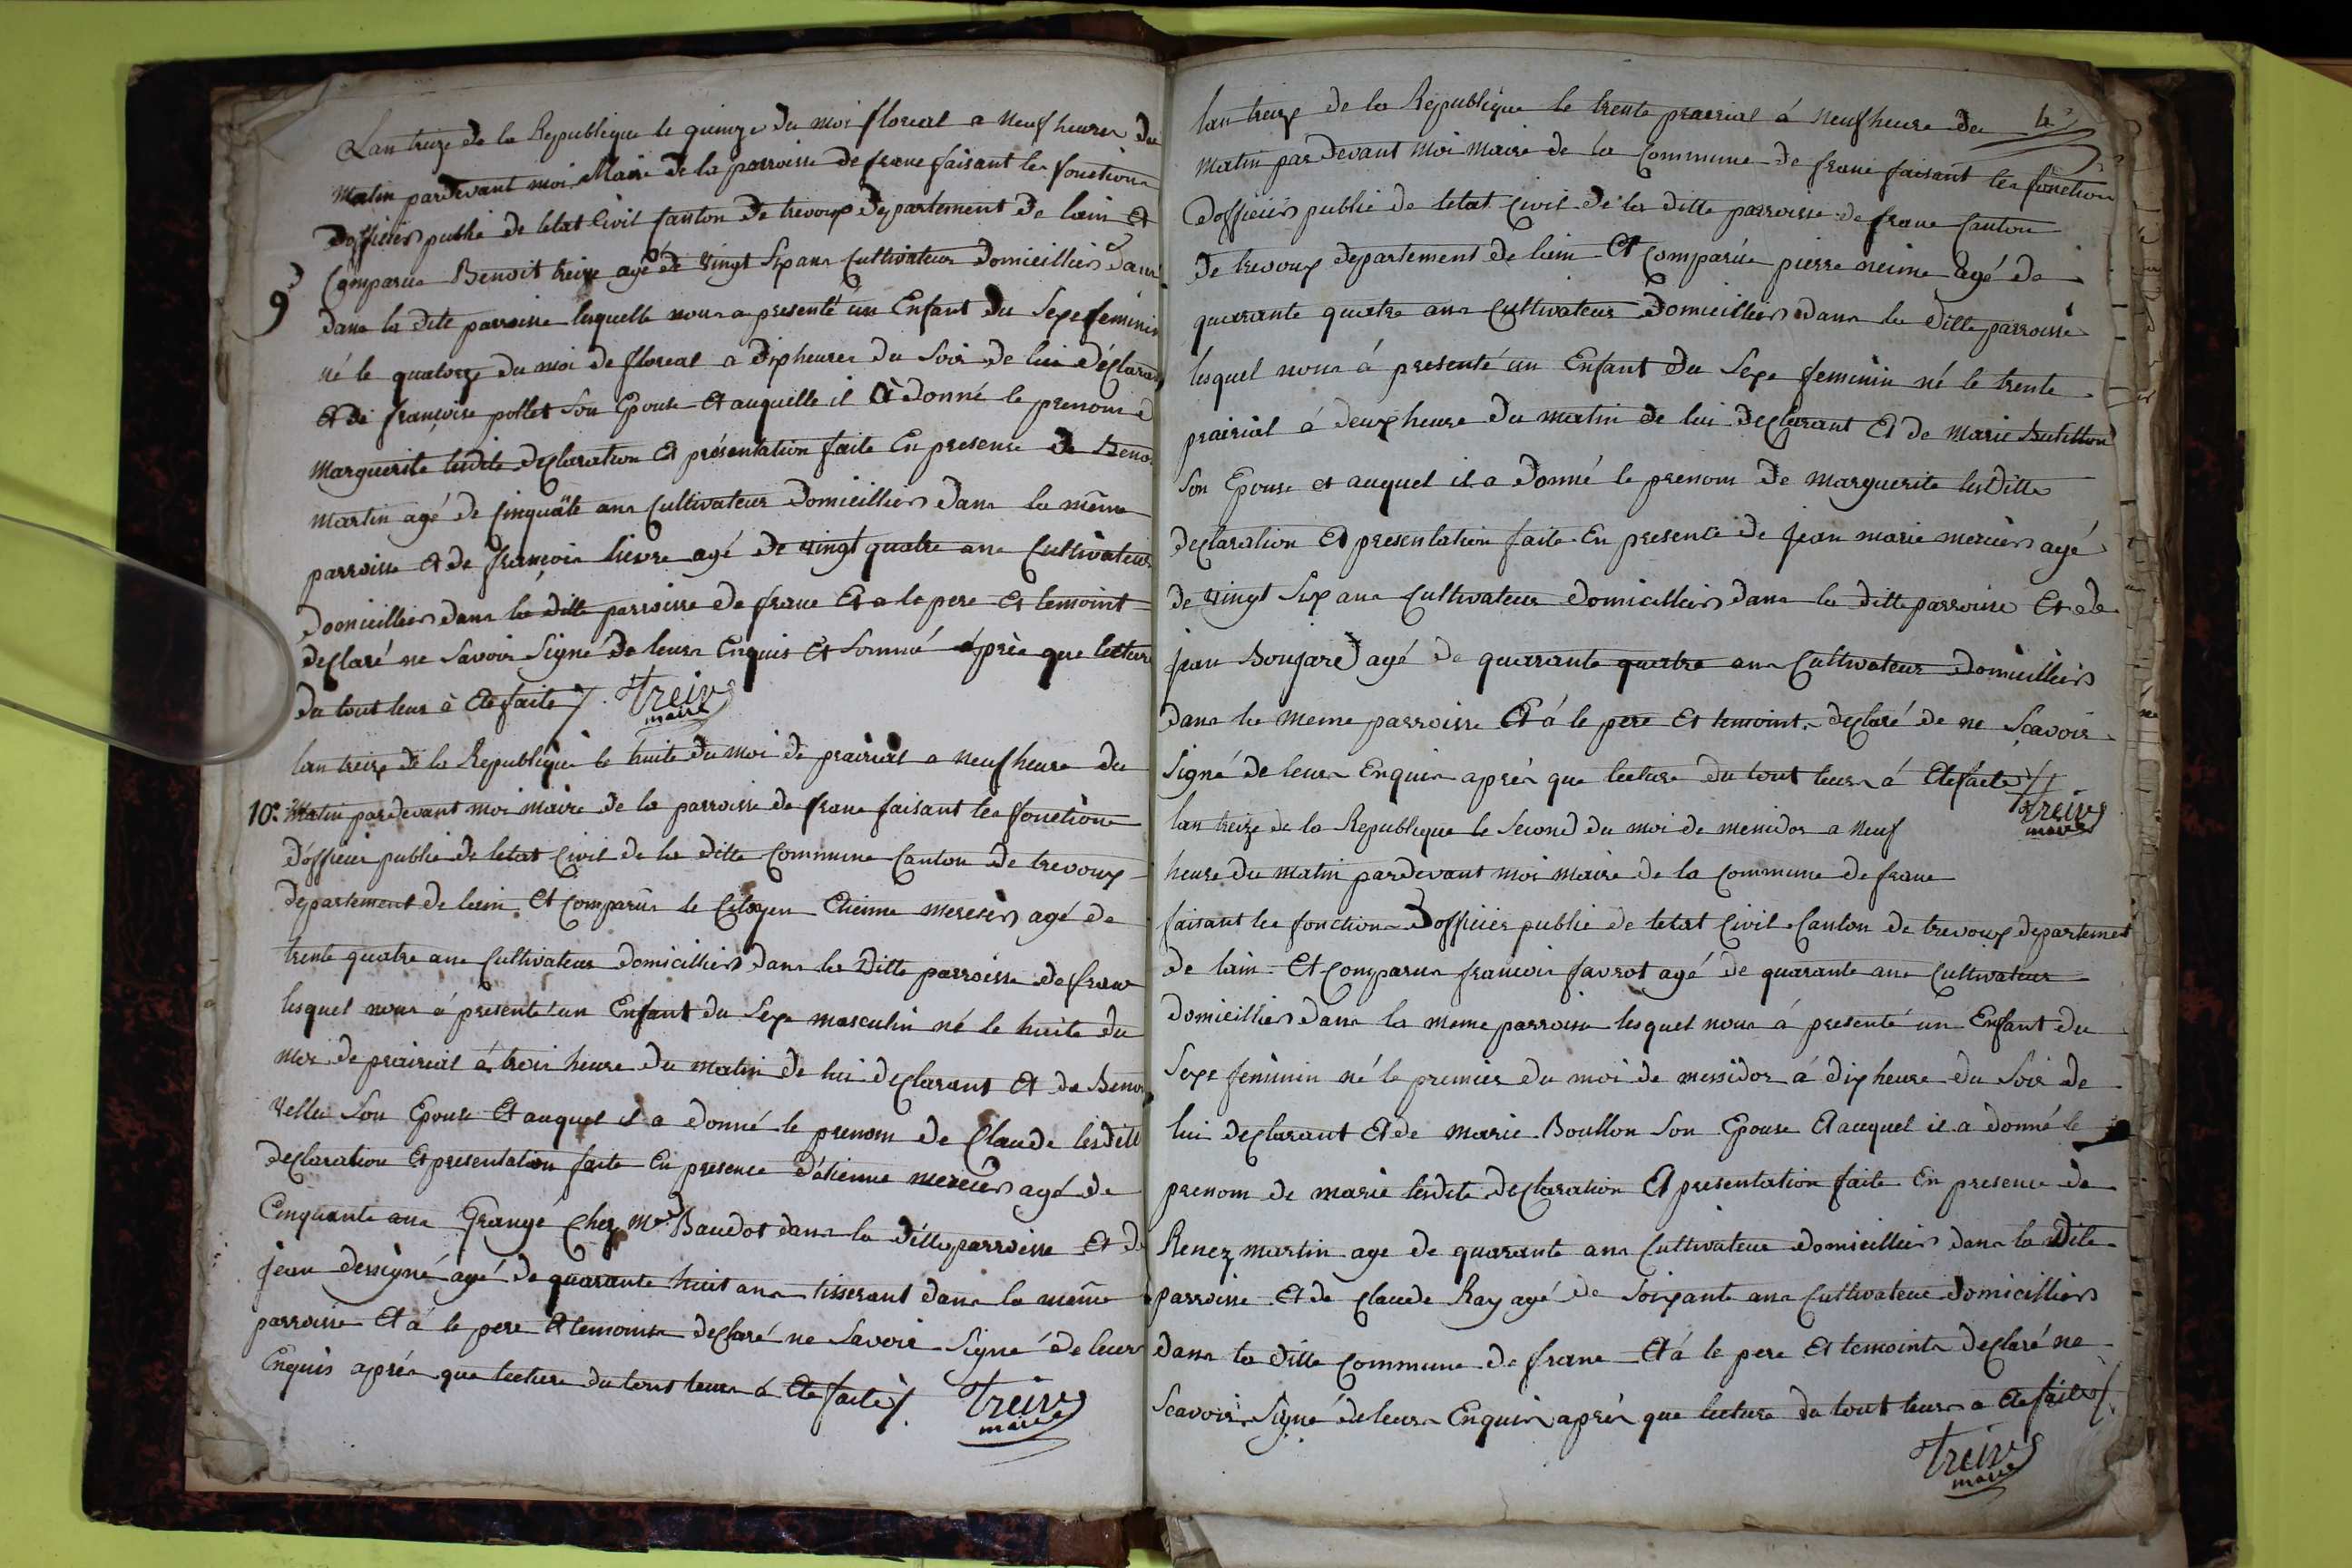 Lan treize de la Republique le quinze du moi floreal a neuf heures du
matin pardevant moi Maire de la parroisse de frane faisant les fonctions
dofficier public de letat Civil Canton de trevoux departement de lain Et
9e Comparus Benoit treive agé de vingt Six ans Cultivateur Domicillier dans
dans la dite parroisse lequelle nous a presenté un Enfant du Sexe feminin
né le quatorze du moi de floreal a dix heures du Soir de lui déclarant
Et de françoise pollet Son Epouse Et auquelle il à donné le prenom d
marguerite lesdite declaration Et présentation faite En presense de Beno
martin agé de Cinquäte ans Cultivateur Domicillier dans la même
parroisse Et de françois lievre agé de vingt quatre ans Cultivateur
Domicillier dans la ditte parroisse de frane Et a le pere Et temoint
declaré ne Savoir Signé de leurs Enquis Et Sommé après que lecture
du tout leur à Eté faite /. Treive
maire
lan treize de la Republique le huite du moi de prairial a neuf heure du
10e matin pardevant moi maire de la parroisse de frane faisant les fonctions
d'officier public de letat Civil de la ditte Commune Canton de trevoux
departement de lain Et Comparus le Citoyen Etienne mercier agé de
trente quatre ans Cultivateur domicillier dans la ditte parroisse de frane
lesquel nous à presenté un Enfant du Sexe masculin né le huite du
moi de prairial à trois heure du matin de lui declarant Et de Benoi
vellu Son Epouse Et auquel il a donné le prenom de Claude lesditt
declaration Et presentation faite En presence d'étienne mercier agé de
Cinquante ans Grangé Chez Mr Baudot dans la ditte parroisse Et de
jean dessigné agé de quarante huit ans tisserant dans la même
parroisse Et à le pere Et temoins declaré ne Savoir Signé de leurs
Enquis après que lecture du tout leurs à Eté faite /. Treive
maire
lan treize de la Republique le trente prairial à neuf heure du 4e
matin pardevant moi maire de la Commune de frane faisant les fonction
dofficier public de letat Civil de la ditte parroisse de frane Canton
de trevoux departement de lain Et Comparûe pierre neime agé de
quarante quatre ans Cultivateur Domicillier dans la ditte parroisse
lesquel nous à presenté un Enfant du Sexe feminin né le trente
prairial à deux heure du matin de lui declarant Et de marie Butillon
Son Epouse et auquel il a donné le prenom de marguerite lesditte
declaration Et presentation faite En presente de jean marie mercier agé
de vingt Six ans Cultivateur Domicillier dans la ditte parroisse Et de
jean Bonjard agé de quarante quatre ans Cultivateur Domicillier
dans la meme parroisse Et à le pere Et temoint declaré de ne Scavoir
Signé de leurs Enquis après que lecture du tout leurs à Eté faite /.
Treive
maire
lan treize de la Republique le Second du moi de messidor a neuf
heure du matin pardevant moi maire de la Commune de frane
faisant les fonctions dofficier public de letat Civil Canton de trevoux departement
de lain Et Comparus francois favrot agé de quarante ans Cultivateur
domicillier dans la meme parroisse lesquel nous à presenté un Enfant du
Sexe feminin né le premier du moi de messidor à dix heure du Soir de
lui declarant Et de marie Boullon Son Epouse Et auquel il a donné le
prenom de marie lesdite declaration Et presentation faite En presence de
Renez martin age de quarante ans Cultivateur domicillier dans la dite
parroisse Et de Claude Ray agé de Soixante ans Cultivateur domicillier
dans la ditte Commune de frane Et à le pere Et temoints declaré ne
Scavoir Signé de leurs Enquis après que lecture du tout leurs a Eté faite /.
Treive
maire